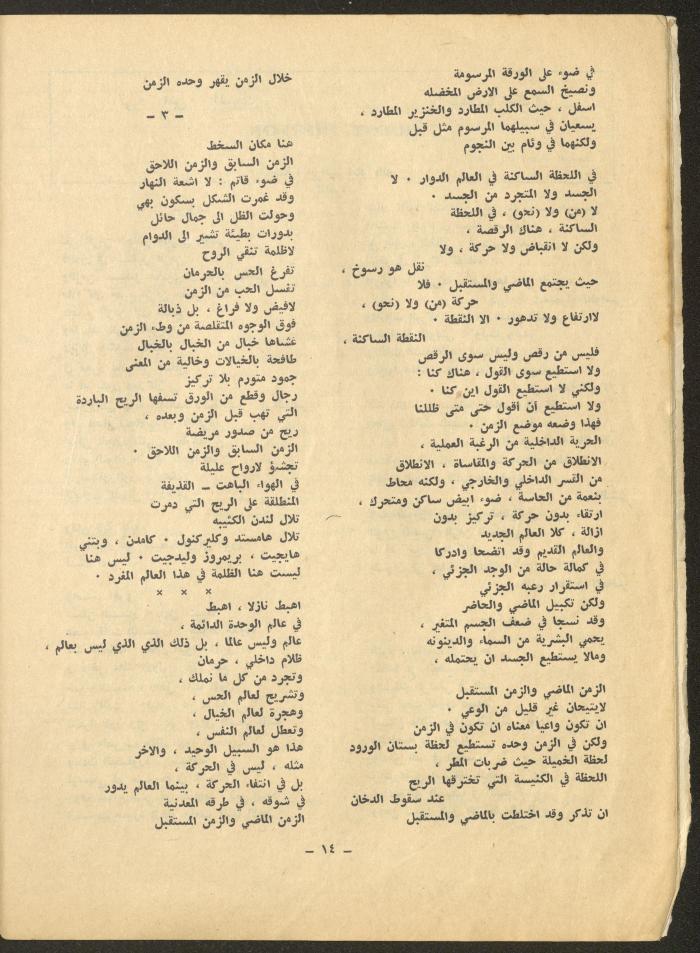 في ضوء على الورقة المرسومة
ونصيخ السمع على الارض المخضله
اسفل ، حيث الكلب المطارد والخنزير المطارد ،
يسعيان في سبيلهما المرسوم مثل قبل
ولكنهما في وئام بين النجوم
في اللحظة الساكنة في العالم الدوار ٠ لا
الجسد ولا المتجرد من الجسد ٠
لا (من) ولا (نحو) ، في اللحظة
الساكنة ، هناك الرقصة ،
ولكن لا انقباض ولا حركة ، ولا
نقل هو رسوخ ،
حيث يجتمع الماضي والمستقبل ٠ فلا
حركة (من) ولا (نحو) ،
لاارتفاع ولا تدهور ٠ الا النقطة ٠
النقطة الساكنة ،
فليس من رقص وليس سوى الرقص
ولا استطيع سوى القول ، هناك كنا :
ولكني لا استطيع القول اين كنا ٠
ولا استطيع أن أقول حتى متى ظللنا
فهذا وضعه موضع الزمن ٠
الحرية الداخلية من الرغبة العملية ،
الانطلاق من الحركة والمقاساة ، الانطلاق
من القسر الداخلي والخارجي ، ولكنه محاط
بنعمة من الحاسة ، ضوء ابيض ساكن ومتحرك ،
ارتقاء بدون حركة ، تركيز بدون
ازالة ، كلا العالم الجديد
والعالم القديم وقد اتضحا وادركا
في كمالة حالة من الوجد الجزئي ،
في استقرار رعبه الجزئي
ولكن تكبيل الماضي والحاضر
وقد نسجا في ضعف الجسم المتغير ،
يحمي البشرية من السماء والدينونه
ومالا يستطيع الجسد ان يحتمله ،
الزمن الماضي والزمن المستقبل
لايتيحان غير قليل من الوعي ٠
ان تكون واعيا معناه ان تكون في الزمن
ولكن في الزمن وحده تستطيع لحظة بستان الورود
لحظة الخميلة حيث ضربات المطر ،
اللحظة في الكنيسة التي تخترقها الريح
عند سقوط الدخان
ان تذكر وقد اختلطت بالماضي والمستقبل
خلال الزمن يقهر وحده الزمن
– ٣ –
هنا مكان السخط
الزمن السابق والزمن اللاحق
في ضوء قاتم : لا اشعة النهار
وقد غمرت الشكل بسكون بهي
وحولت الظل الى جمال حائل
بدورات بطيئة تشير الى الدوام
لاظلمة تنقي الروح
تفرغ الحس بالحرمان
تغسل الحب من الزمن
لافيض ولا فراغ ، بل ذبالة
فوق الوجوه المتقلصة من وطء الزمن
غشاها خبال من الخبال بالخبال
طافحة بالخيالات وخالية من المعنى
جمود متورم بلا تركيز
رجال وقطع من الورق تسفها الريح الباردة
التي تهب قبل الزمن وبعده ،
ريح من صدور مريضة
الزمن السابق والزمن اللاحق ٠
تجشؤ لارواح عليلة
في الهواء الباهت – القذيفة
المنطلقة على الريح التي دمرت
تلال لندن الكئيبه
تلال هامستد وكليركنول ٠ كامدن ، وبتني
هايجيت ، بريمروز وليدجيت ٠ ليس هنا
ليست هنا الظلمة في هذا العالم المغرد ٠
× × ×
اهبط نازلا ، اهبط
في عالم الوحدة الدائمة ،
عالم وليس عالما ، بل ذلك الذي الذي ليس بعالم ،
ظلام داخلي ، حرمان
وتجرد من كل ما نملك ،
وتشريح لعالم الحس ،
وهجرة لعالم الخيال ،
وتعطل لعالم النفس ،
هذا هو السبيل الوحيد ، والاخر
مثله ، ليس في الحركة ،
بل في انتفاء الحركة ، بينما العالم يدور
في شوقه ، في طرقه المعدنية
الزمن الماضي والزمن المستقبل
– ١٤ –